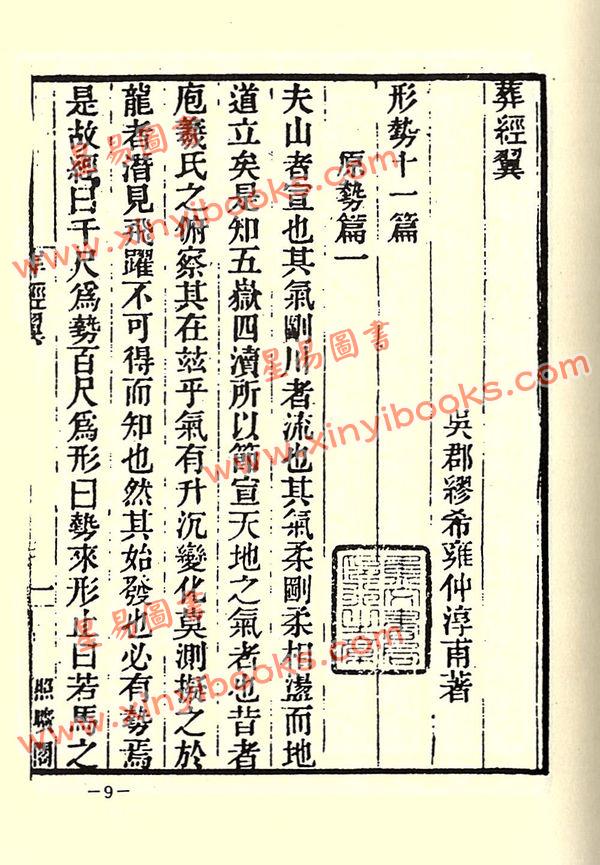 葬經翼
吳郡繆希雍仲淳甫著
形勢十一篇
原勢篇一
夫山者宣也其氣剛川者流也其氣柔剛柔相盪而地
道立矣是知五嶽四瀆所以節宣天地之氣者也昔者
庖羲氏之俯察其在茲乎氣有升沉變化莫測擬之於
龍者潛見飛躍不可得而知也然其始發也必有勢焉
是故經曰千尺爲勢百尺爲形曰勢來形止曰若馬之
葬經翼
一
照曠閣
—9—
星易圖書
www.xinyibooks.com
星易圖書
www.xinyibooks.com
星易圖書
www.xinyibooks.com